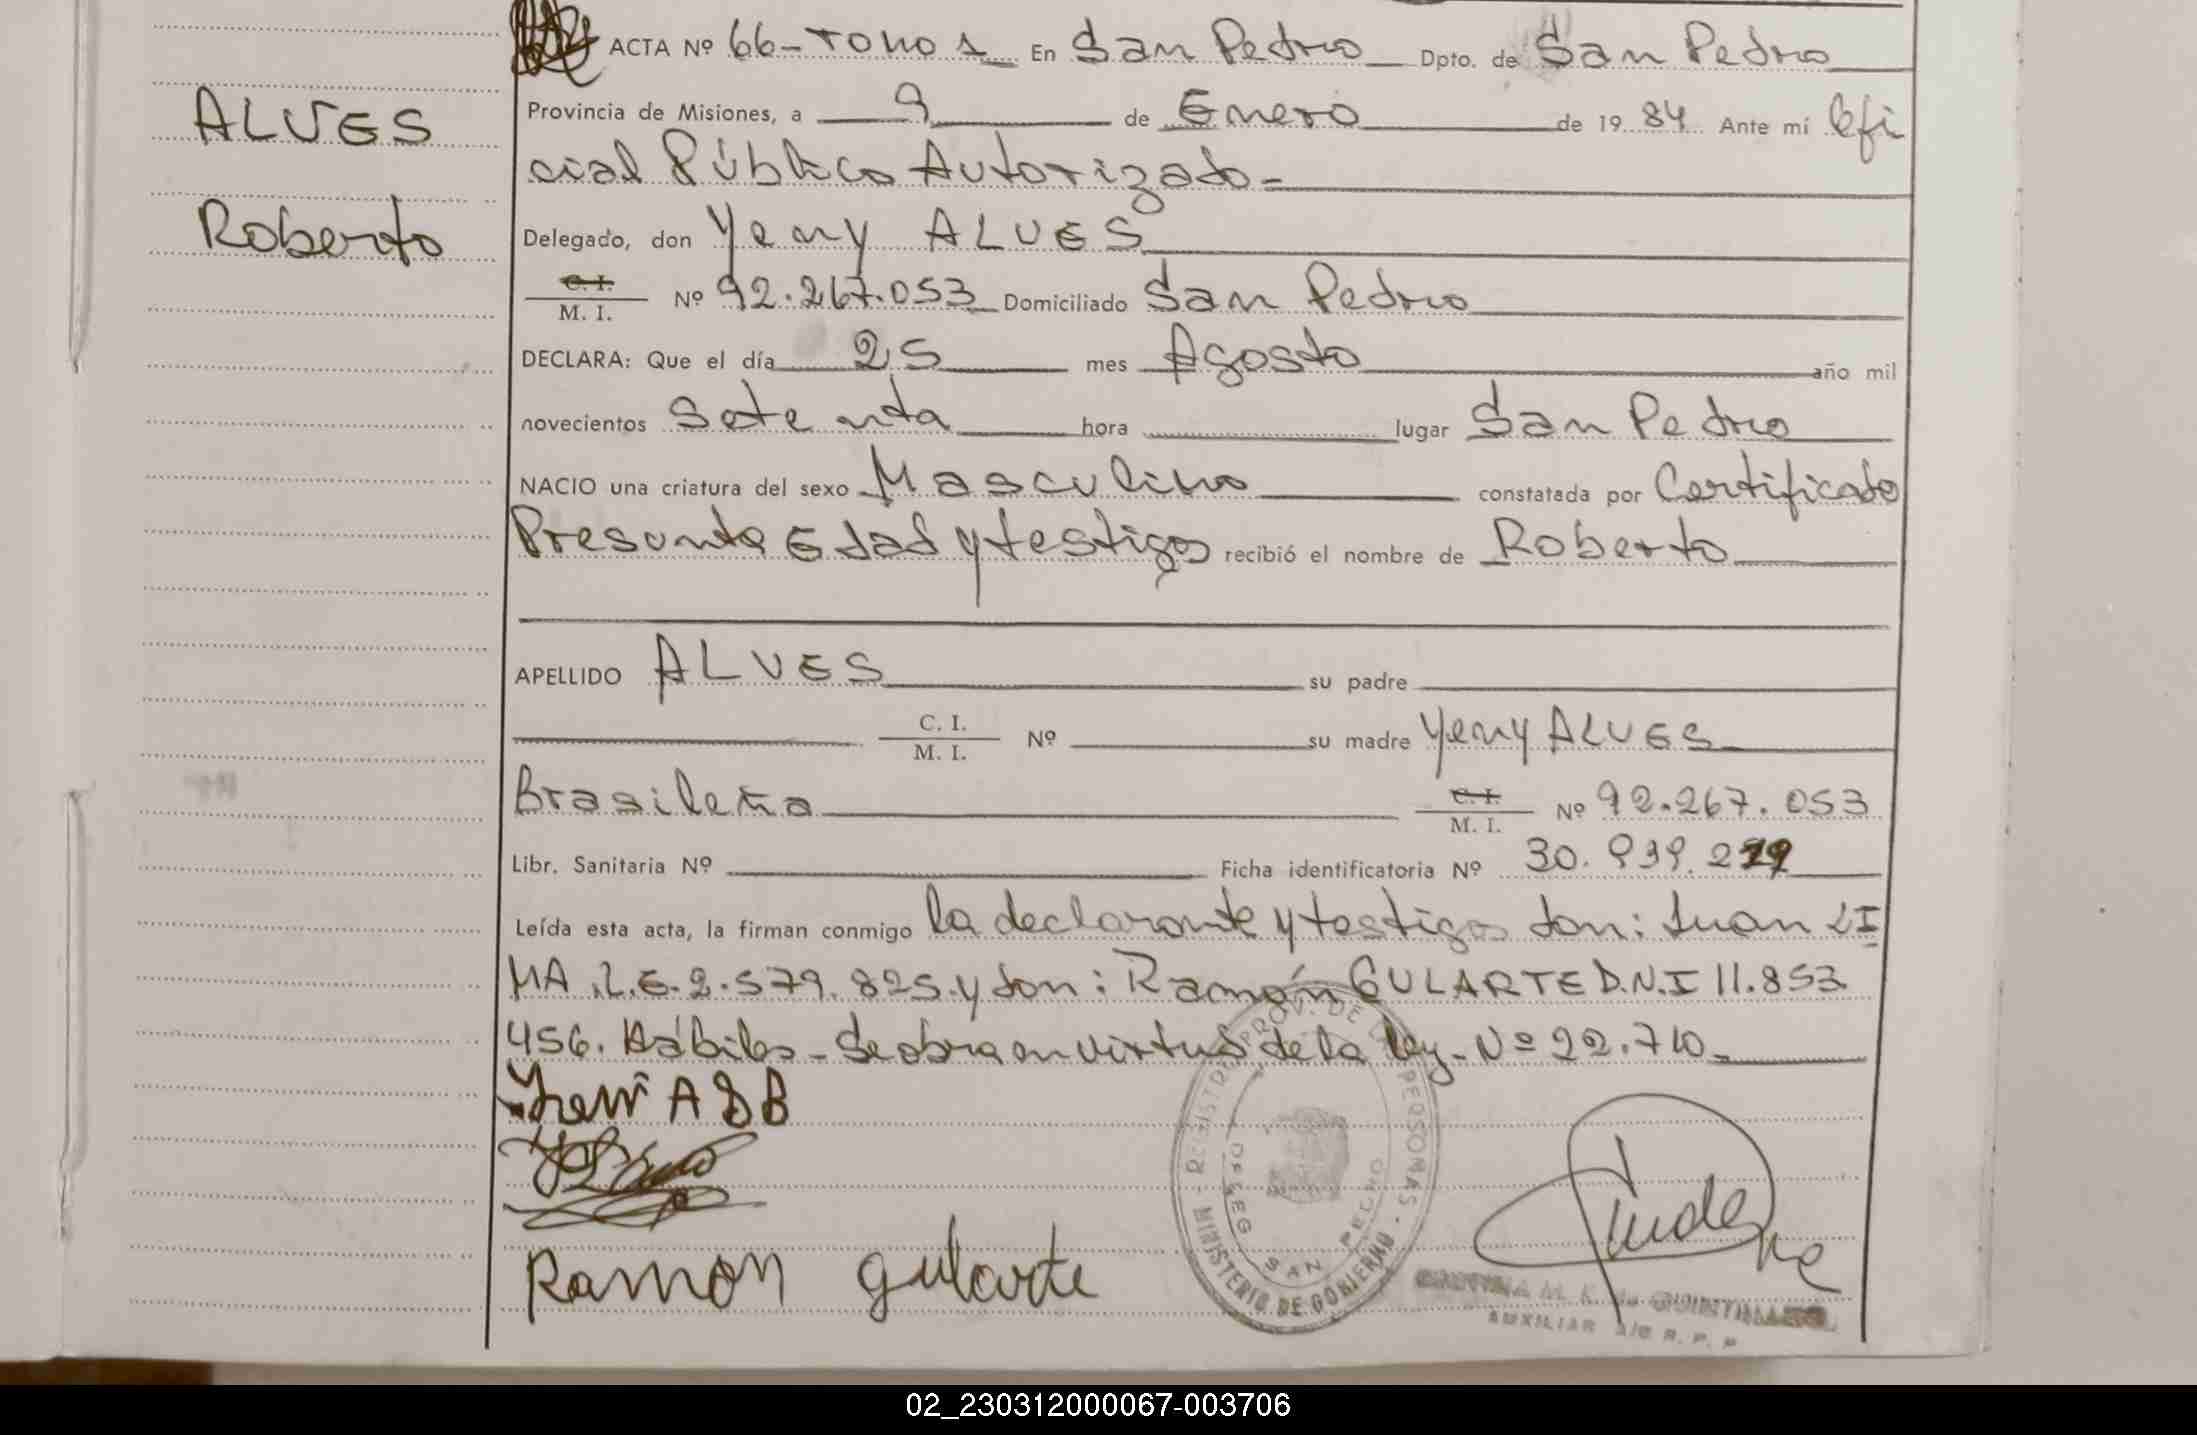 ALVES
Roberto
ACTA Nº 66-TOMO 1 En San Pedro Dpto. de San Pedro
Provincia de Misiones, a 9 de Enero de 1984 Ante mí Ofi
cial Público Autorizado-
Delegado, don Yeny ALVES
C. I.
M. I. Nº 92.267.053 Domiciliado San Pedro
DECLARA: Que el día 25 mes Agosto año mil
novecientos Setenta hora lugar San Pedro
NACIO una criatura del sexo Masculino constatada por Certificado
Presunta Edad y testigos recibió el nombre de Roberto
APELLIDO ALVES su padre
C. I.
M. I. Nº su madre Yeny ALVES
Brasileña C. I.
M. I. Nº 92.267.053
Libr. Sanitaria Nº Ficha identificatoria Nº 30.939.2
Leída esta acta, la firman conmigo la declarante y testigos don: Juan LI
MA.L.E.2.579.825.y don: Ramón GULARTE D.N.I 11.853
456. Hábiles-Se obra en virtud de la ley-Nº 22.710-
Ramon gularte
REGISTRO PROV. DE PERSONAS - MINISTERIO DE GOBIERNO -
SAN PEDRO
M. K. de QUINTANA
AUXILIAR A/C R. P. P
02_230312000067-003706